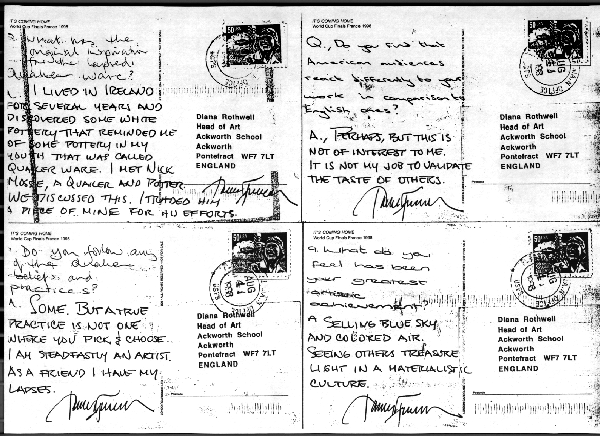 IT'S COMING HOME
World Cup Finals France 1998
Q. What was the
original inspiration
for the layered
Quaker ware?
A. I LIVED IN IRELAND
FOR SEVERAL YEARS AND
DISCOVERED SOME WHITE
POTTERY THAT REMINDED ME
OF SOME POTTERY IN MY
YOUTH THAT WAS CALLED
QUAKER WARE. I MET NICK
MOSSE, A QUAKER AND POTTER
WE DISCUSSED THIS. I TRADED HIM
A PIECE OF MINE FOR HIS EFFORTS.
50
AUG
1998
Diana Rothwell
Head of Art
Ackworth School
Ackworth
Pontefract WF7 7LT
ENGLAND
IT'S COMING HOME
World Cup Finals France 1998
Q., Do you find that
American audiences
react differently to your
work in comparison to
English ones?
A., PERHAPS, BUT THIS IS
NOT OF INTEREST TO ME.
IT IS NOT MY JOB TO VALIDATE
THE TASTE OF OTHERS.
50
AUG
Diana Rothwell
Head of Art
Ackworth School
Ackworth
Pontefract WF7 7LT
ENGLAND
IT'S COMING HOME
World Cup Finals France 1998
Do you follow any
of the Quaker
beliefs and
practices?
A. SOME. BUT A TRUE
PRACTICE IS NOT ONE
WHERE YOU PICK & CHOOSE.
I AM STEADFASTLY AN ARTIST.
AS A FRIEND I HAVE MY
LAPSES.
50
AUG
4
1998
Diana Rothwell
Head of Art
Ackworth School
Ackworth
Pontefract WF7 7LT
ENGLAND
IT'S COMING HOME
World Cup Finals France 1998
Q. What do you
feel has been
your greatest
artistic
achievement?
A SELLING BLUE SKY
AND COLORED AIR.
SEEING OTHERS TREASURE
LIGHT IN A MATERIALISTIC
CULTURE.
50
AUG
Diana Rothwell
Head of Art
Ackworth School
Ackworth
Pontefract WF7 7LT
ENGLAND